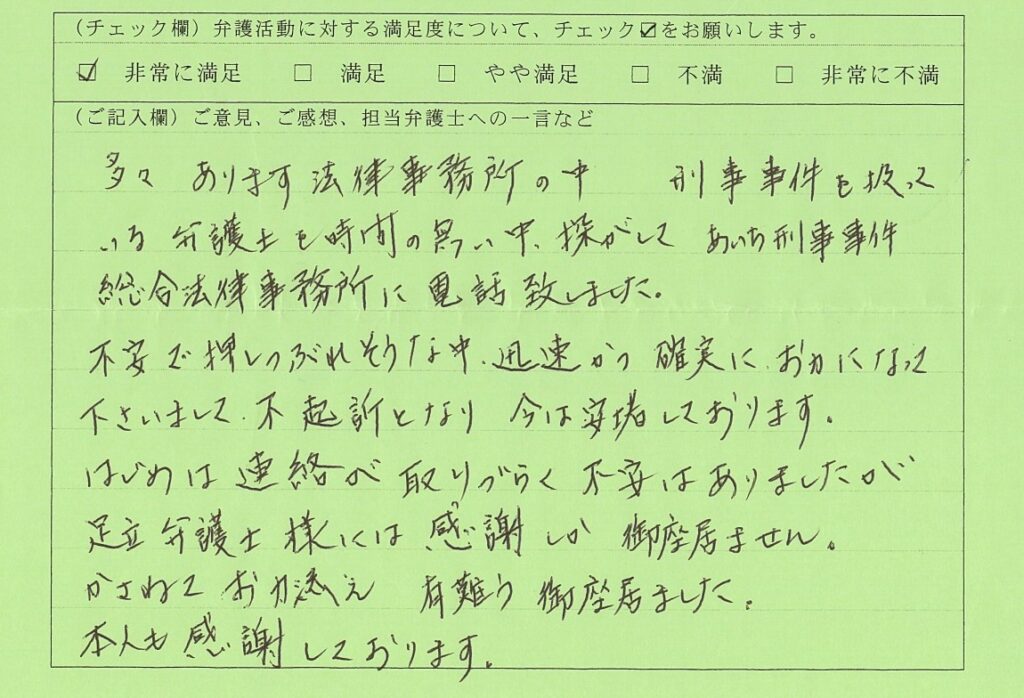 （チェック欄）弁護活動に対する満足度について、チェック☑をお願いします。
☑ 非常に満足 □ 満足 □ やや満足 □ 不満 □ 非常に不満
（ご記入欄）ご意見、ご感想、担当弁護士への一言など
多々あります法律事務所の中 刑事事件を扱って
いる弁護士を時間の無い中、探がして あいち刑事事件
総合法律事務所に電話致しました。
不安で押しつぶれそうな中、迅速かつ確実に おカになって
下さいまして、不起訴となり 今は安堵しております。
はじめは連絡が取りづらく不安はありましたが
足立弁護士様には感謝しか御座居ません。
かさねて お力添え 有難う御座居ました。
本人も感謝しております。